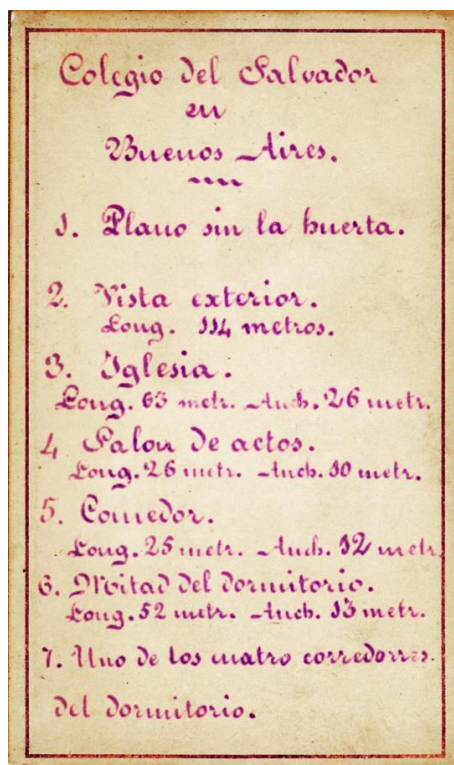 Colegio del Salvador
en
Buenos Aires.
1. Plano sin la huerta.
2. Vista exterior.
Long. 114 metros.
3. Iglesia.
Long. 63 metr. Anch. 26 metr.
4 Salon de actos.
Long. 26 metr. Anch. 10 metr.
5. Comedor.
Long. 25 metr. Anch. 12 metr.
6. Mitad del dormitorio.
Long. 52 metr. Anch. 13 metr.
7. Uno de los cuatro corredorres.
del dormitorio.